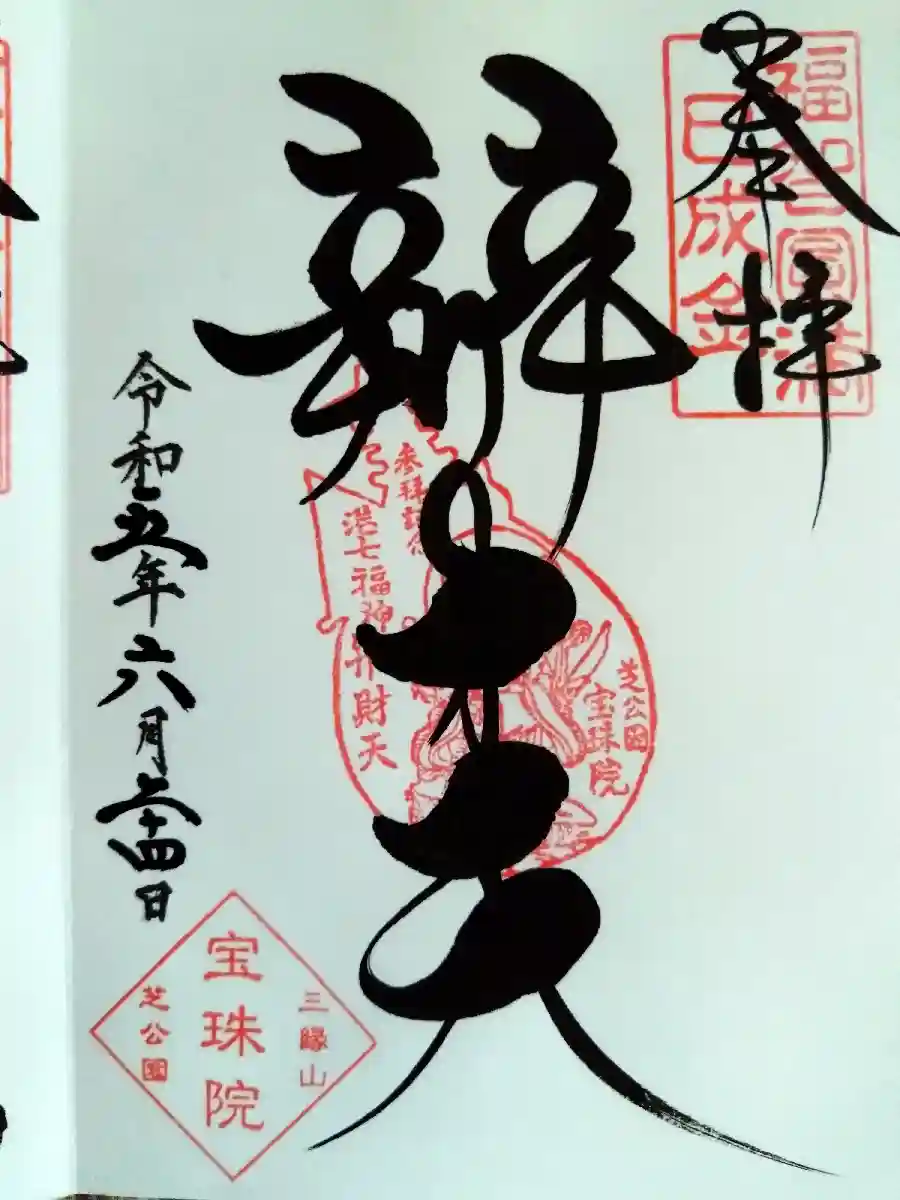 奉拝
福知円満
日成金
辨才天
参拝記念
港七福神
弁財天
芝公園
宝珠院
令和五年六月二十四日
三縁山
宝珠院
芝公園